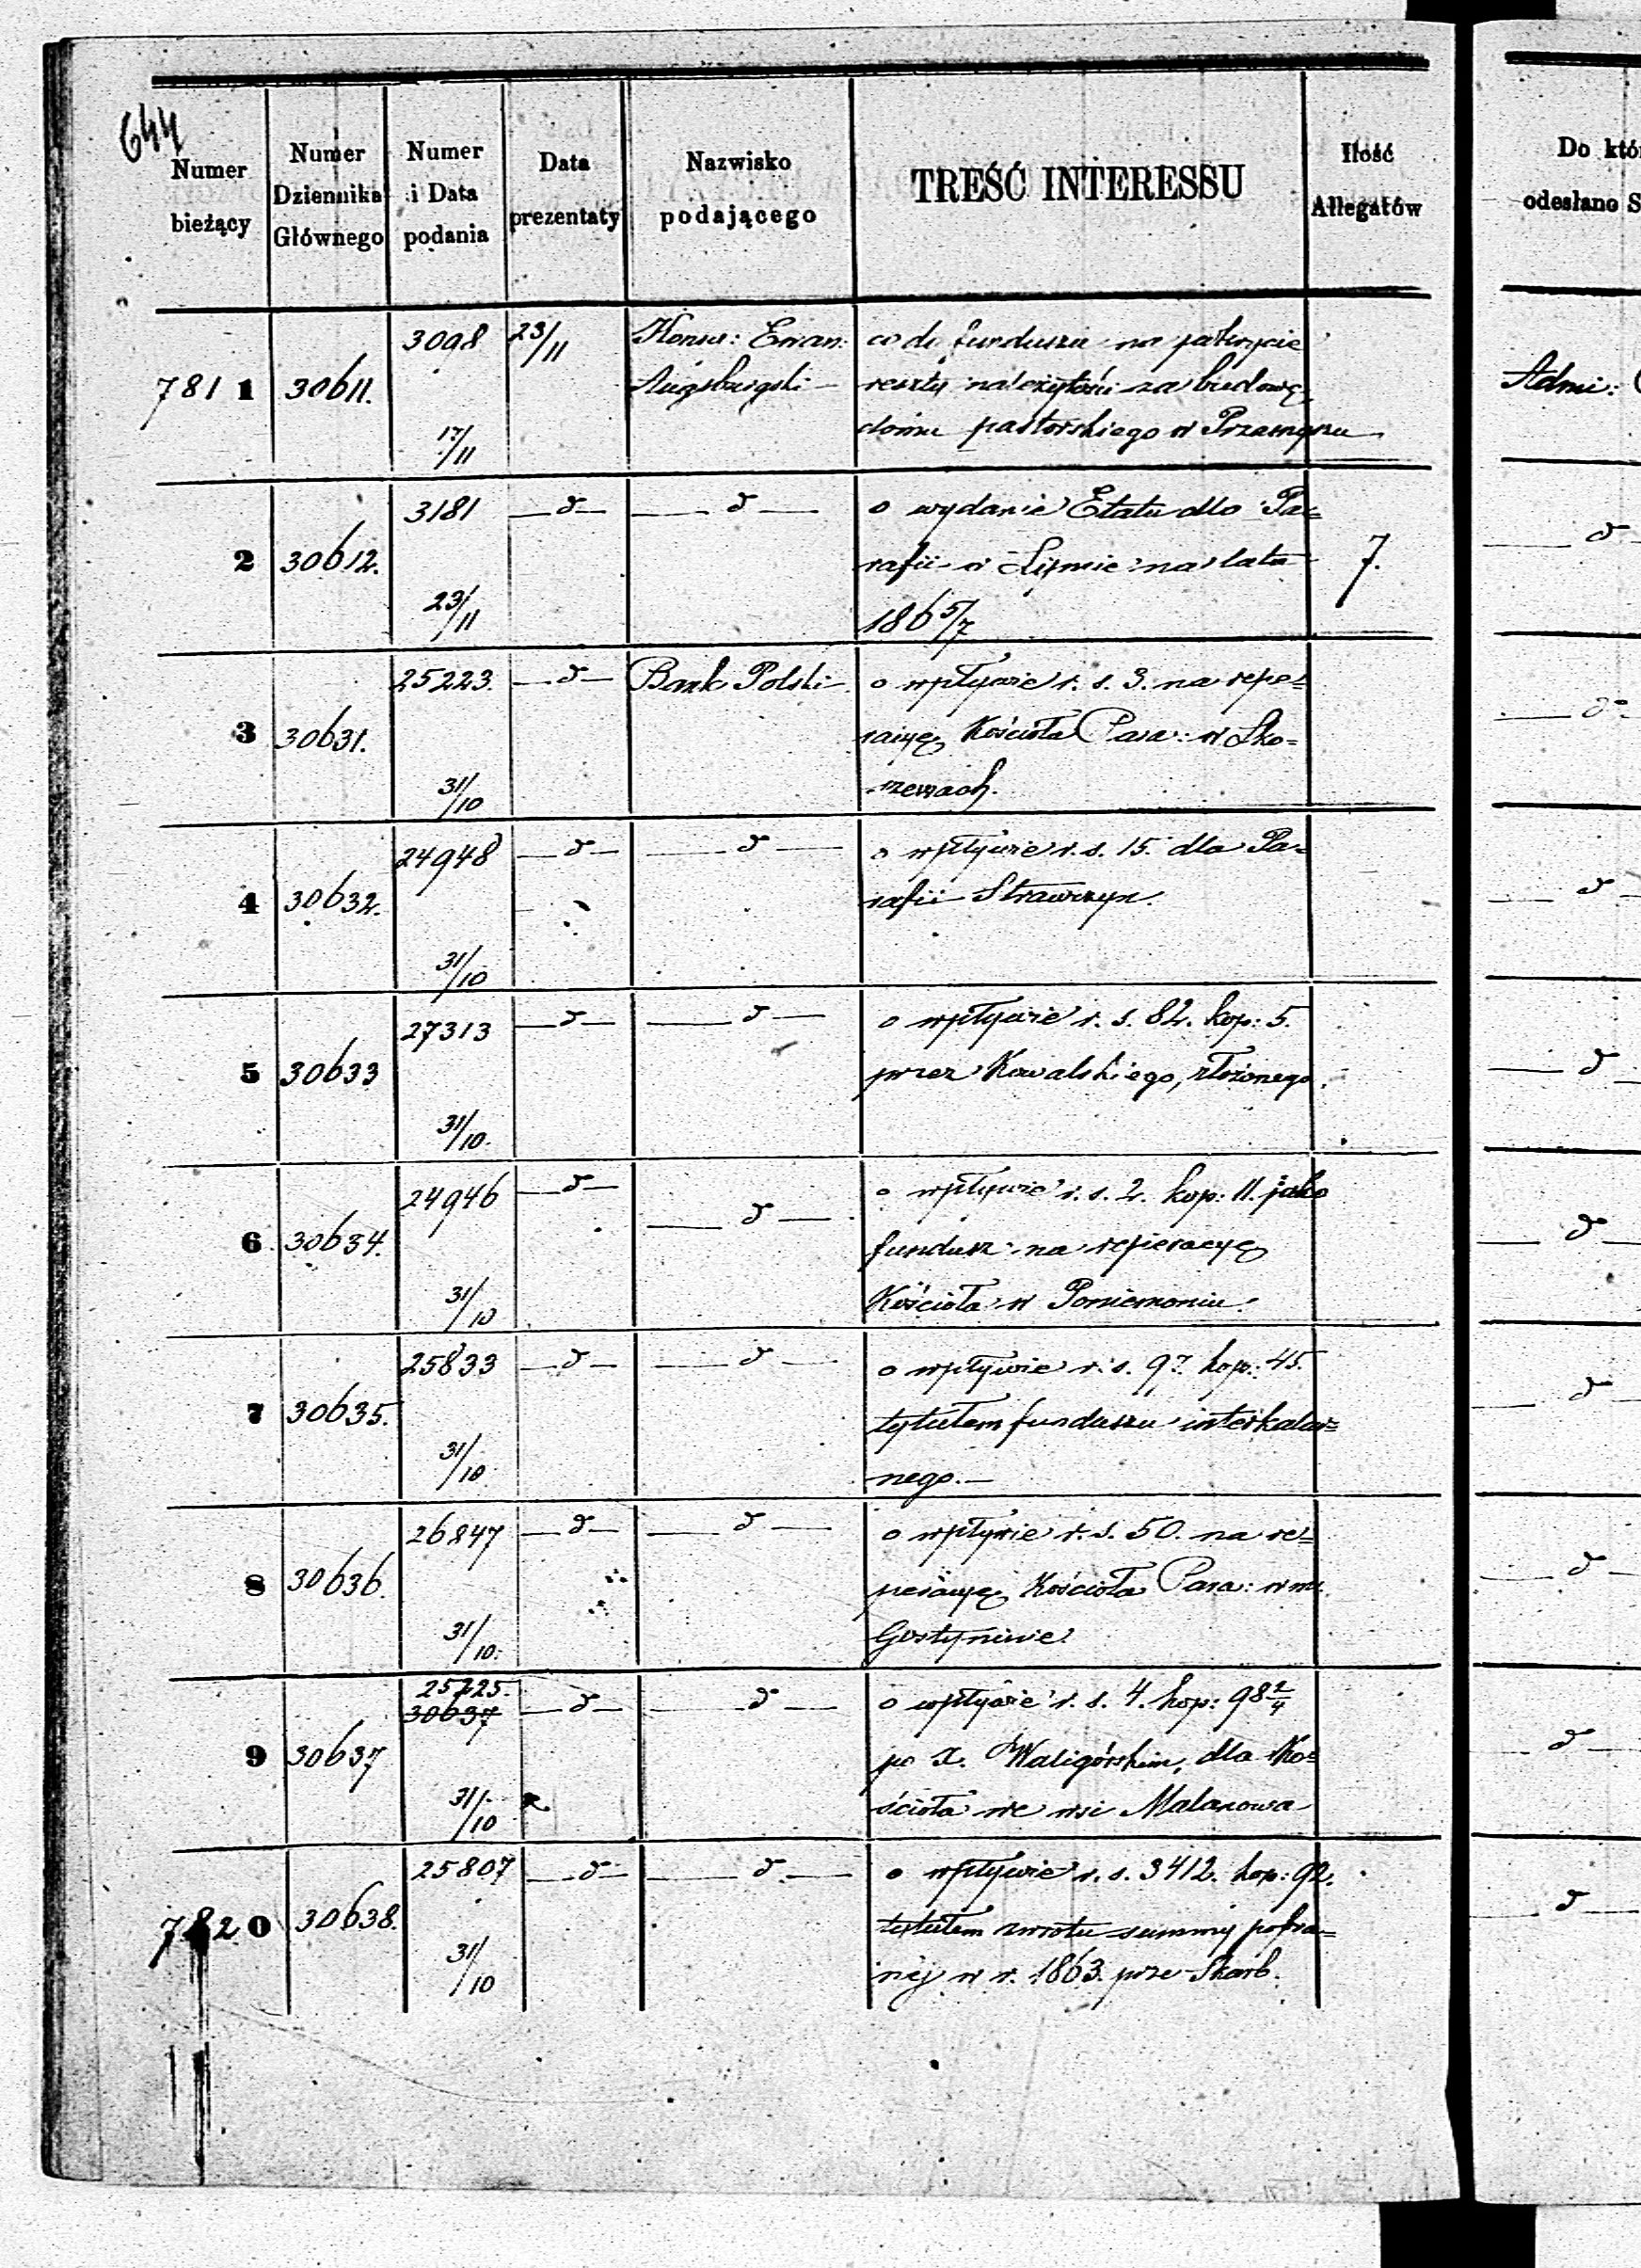 644
Numer bieżący
Numer Dziennika Głównego
Numer i Data podania
Data prezentaty
Nazwisko podającego
TREŚĆ INTERESSU
Ilość Allegatów
Do któr
odesłano S
7811 30611. 3098 17/11 23/11 Konsr: Ewan: Augsburgski co do funduszu na pokrycie
reszty należytości za budowę
domu pastorskiego w Przasnyszu
Admi:
2 30612. 3181 23/11 — d — — d — o wydanie Etatu dla Pa=
rafii w Lipnie na lata 7.
186 5/7
— d —
3 30631. 25223. 31/10 — d — Bank Polski o wpływie r. s. 3. na repe=
racyę Kościoła Para: w Sko=
rzewach.
— d —
4 30632. 24948 31/10 — d — — d — o wpływie r. s. 15. dla Pa=
rafii Strawczyn.
— d —
5 30633 27313 31/10. — d — — d — o wpływie r. s. 82. kop: 5.
przez Kowalskiego, złożonego.
— d —
6 30634. 24946 31/10 — d — — d — o wpływie r. s. 2. kop: 11. jako
fundusz na reperacyę
Kościoła w Poniemoniu.
— d —
7 30635. 25833 31/10. — d — — d — o wpływie r. s. 97. kop: 45.
tytułem funduszu interkalar=
nego. —
— d —
8 30636. 26847 31/10. — d — — d — o wpływie r. s. 50. na re=
peracyę Kościoła Para: w m.
Gostyninie.
— d —
9 30637 25725. 30637 31/10 — d — — d — o wpływie r. s. 4. kop: 98 2/4
po X. Waligórskim, dla Ko=
ścioła we wsi Malanowa
— d —
7820 30638. 25807 31/10 — d — — d — o wpływie r. s. 3412. kop: 92.
tytułem zwrotu summy pobra=
nej w r. 1863. prze Skarb.
— d —